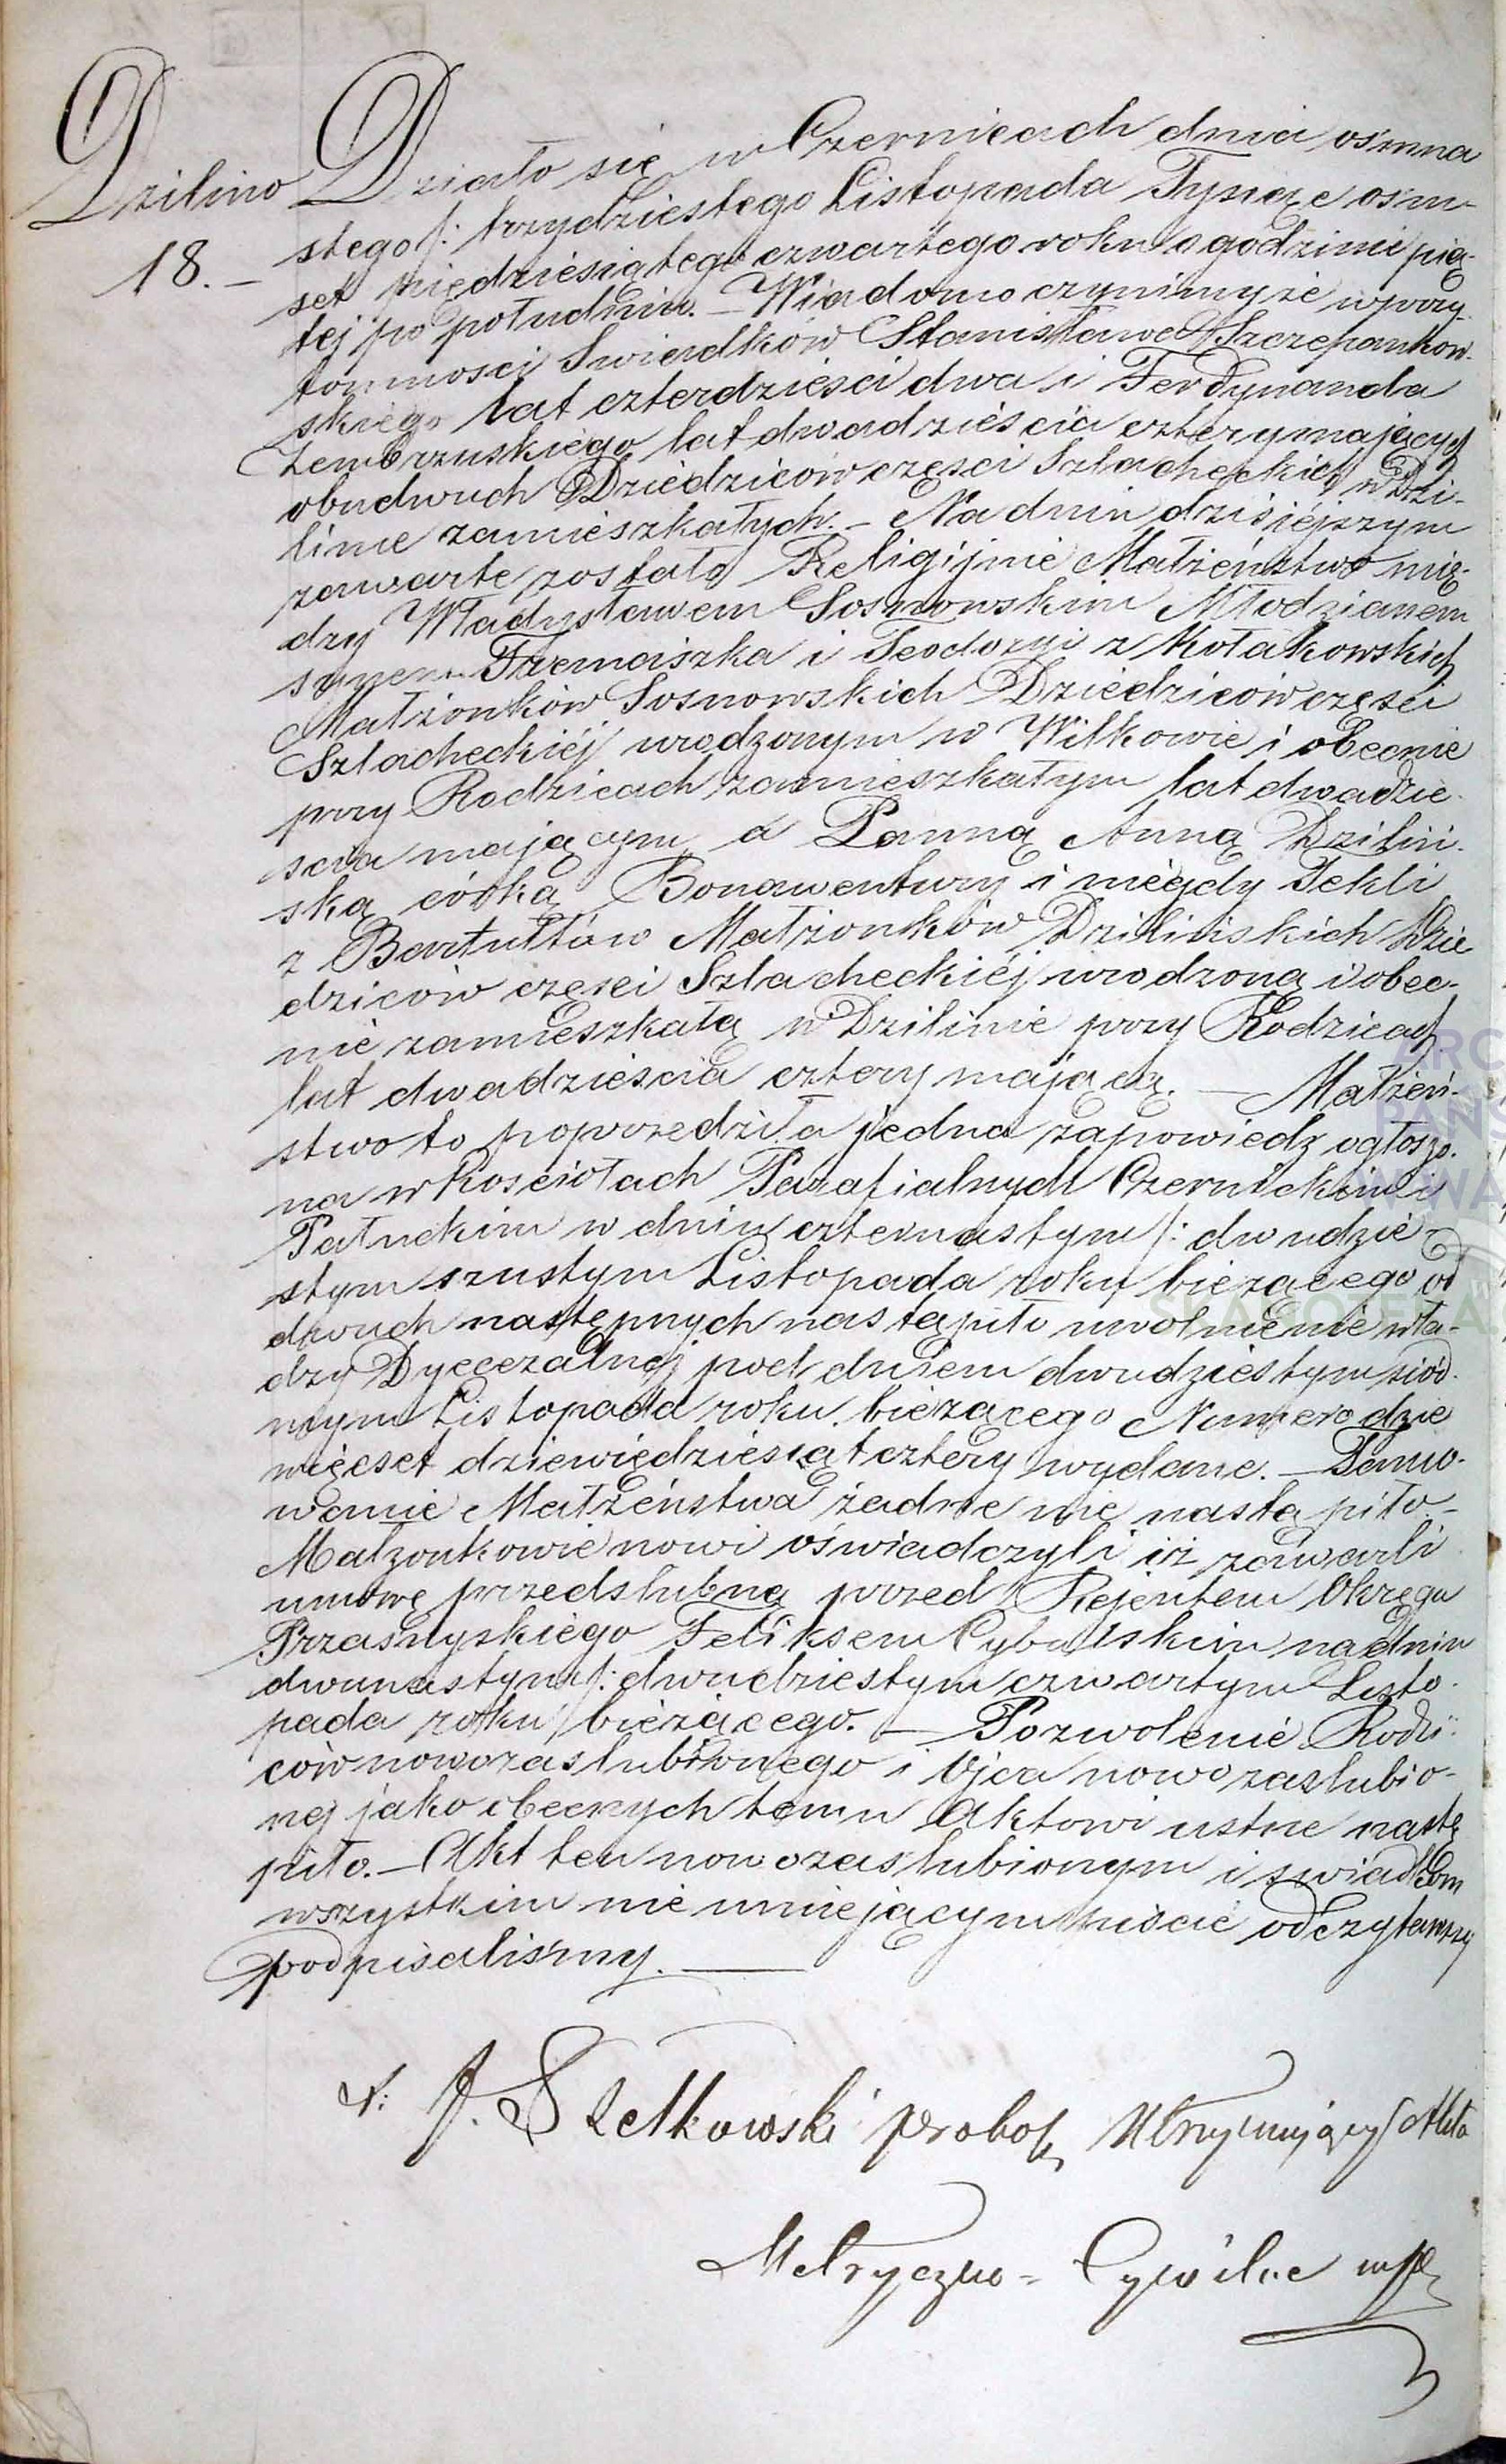 Dzilino
18. —
Działo się w Czernicach dnia osmna
stego /: trzydziestego Listopada Tysiąc osm-
set pięćdziesiątego czwartego roku o godzinie pią-
tej po południu. — Wiadomo czynimy że w przy-
tomnosci Swiadków Stanisława Szczepankow-
skiego lat czterdziesci dwa i Ferdynanda
Zembrzuskiego lat dwadzieścia cztery mających
obudwuch Dziedziców częsci Szlacheckich w Dzi-
linie zamieszkałych. — Na dniu dzisiéjszym
zawarte zostało Religijnie Małżeństwo mię-
dzy Władysławem Sosnowskim Młodzianem
synem Franciszka i Teodozyi z Kołakowskich
Małżonków Sosnowskich Dziedziców częsci
Szlacheckiéj urodzonym w Wilkowie i obecnie
przy Rodzicach zamieszkałym lat dwadzie-
scia mającym, a Panną Anną Dziliń-
ską córką Bonawentury i niegdy Tekli
z Bartułtów Małżonków Dzilińskich Dzie
dziców częsci Szlacheckiéj urodzoną i obec-
nie zamieszkałą w Dzilinie przy Rodzicach
lat dwadzieścia cztery mającą. — Małżeń-
stwo to poprzedziła jedna zapowiedz ogłoszo-
na w Kosciołach Parafialnych Czernickim i
Pałuckim w dniu czternastym /: dwudzie-
stym szustym Listopada roku bieżącego od
dwuch następnych nastąpiło uwolnienie wła-
dzy Dyecezalnej pod dniem dwudziestym siód-
mym Listopada roku bieżącego Numero dzie
więcset dziewięćdziesiąt cztery wydane. — Tamo-
wanie Małżeństwa żadne nie nastąpiło —
Małżonkowie nowi oświadczyli iż zawarli
umowę przedslubną przed Rejentem Okręgu
Przasnyskiego Feliksem Cybulskim na dniu
dwunastym /: dwudziestym czwartym Listo-
pada roku bieżącego. — Pozwolenie Rodzi-
ców nowozaslubionego i Ojca nowozaslubio-
nej jako obecnych temu Aktowi ustne nastą
piło. — Akt ten nowozaslubionym i swiadkom
wszystkim nie umiejącym pisać odczytawszy
podpisalismy. —
X. J. Szelkowski probosz Utrzymujący Akta
Metryczno - Cywilne mp